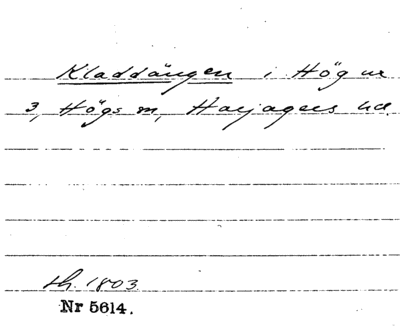 Kladdängen i Hög nr
3, Högs sn, Harjagers hd.
sk. 1803
Nr 5614.